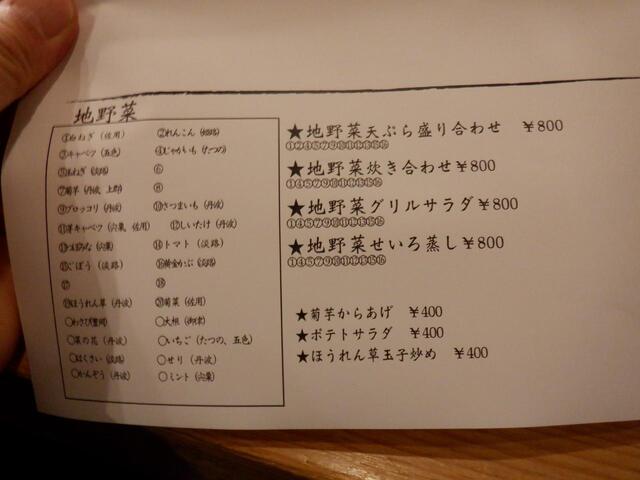 地野菜
①白ねぎ (佐用) ②れんこん (姫路)
③キャベツ (五色) ④じゃがいも (たつの)
⑤玉ねぎ (淡路) ⑥
⑦菊芋 (丹波 上郡) ⑧
⑨ブロッコリ (丹波) ⑩さつまいも (丹波)
⑪洋キャベツ (宍粟、佐用) ⑫しいたけ (丹波)
(宍粟) ⑭トマト (淡路)
⑮ごぼう (淡路) ⑯黄金かぶ (淡路)
⑰ ⑱
⑲ほうれん草 (丹波) ⑳菊菜 (佐用)
○わさび(豊岡) ○大根 (御津)
○菜の花 (丹波) ○いちご (たつの、五色)
○はくさい (淡路) ○せり (丹波)
○かんぞう (丹波) ○ミント (宍粟)
★地野菜天ぷら盛り合わせ ¥800
①②④⑤⑦⑨⑩⑪⑫⑬⑮⑯
★地野菜炊き合わせ¥800
①④⑤⑦⑨⑩⑪⑫⑬⑮⑯
★地野菜グリルサラダ¥800
①④⑤⑦⑨⑩⑪⑫⑬⑮⑯
★地野菜せいろ蒸し¥800
①④⑤⑦⑨⑩⑪⑫⑬⑮⑯
★菊芋からあげ ¥400
★ポテトサラダ ¥400
★ほうれん草玉子炒め ¥400